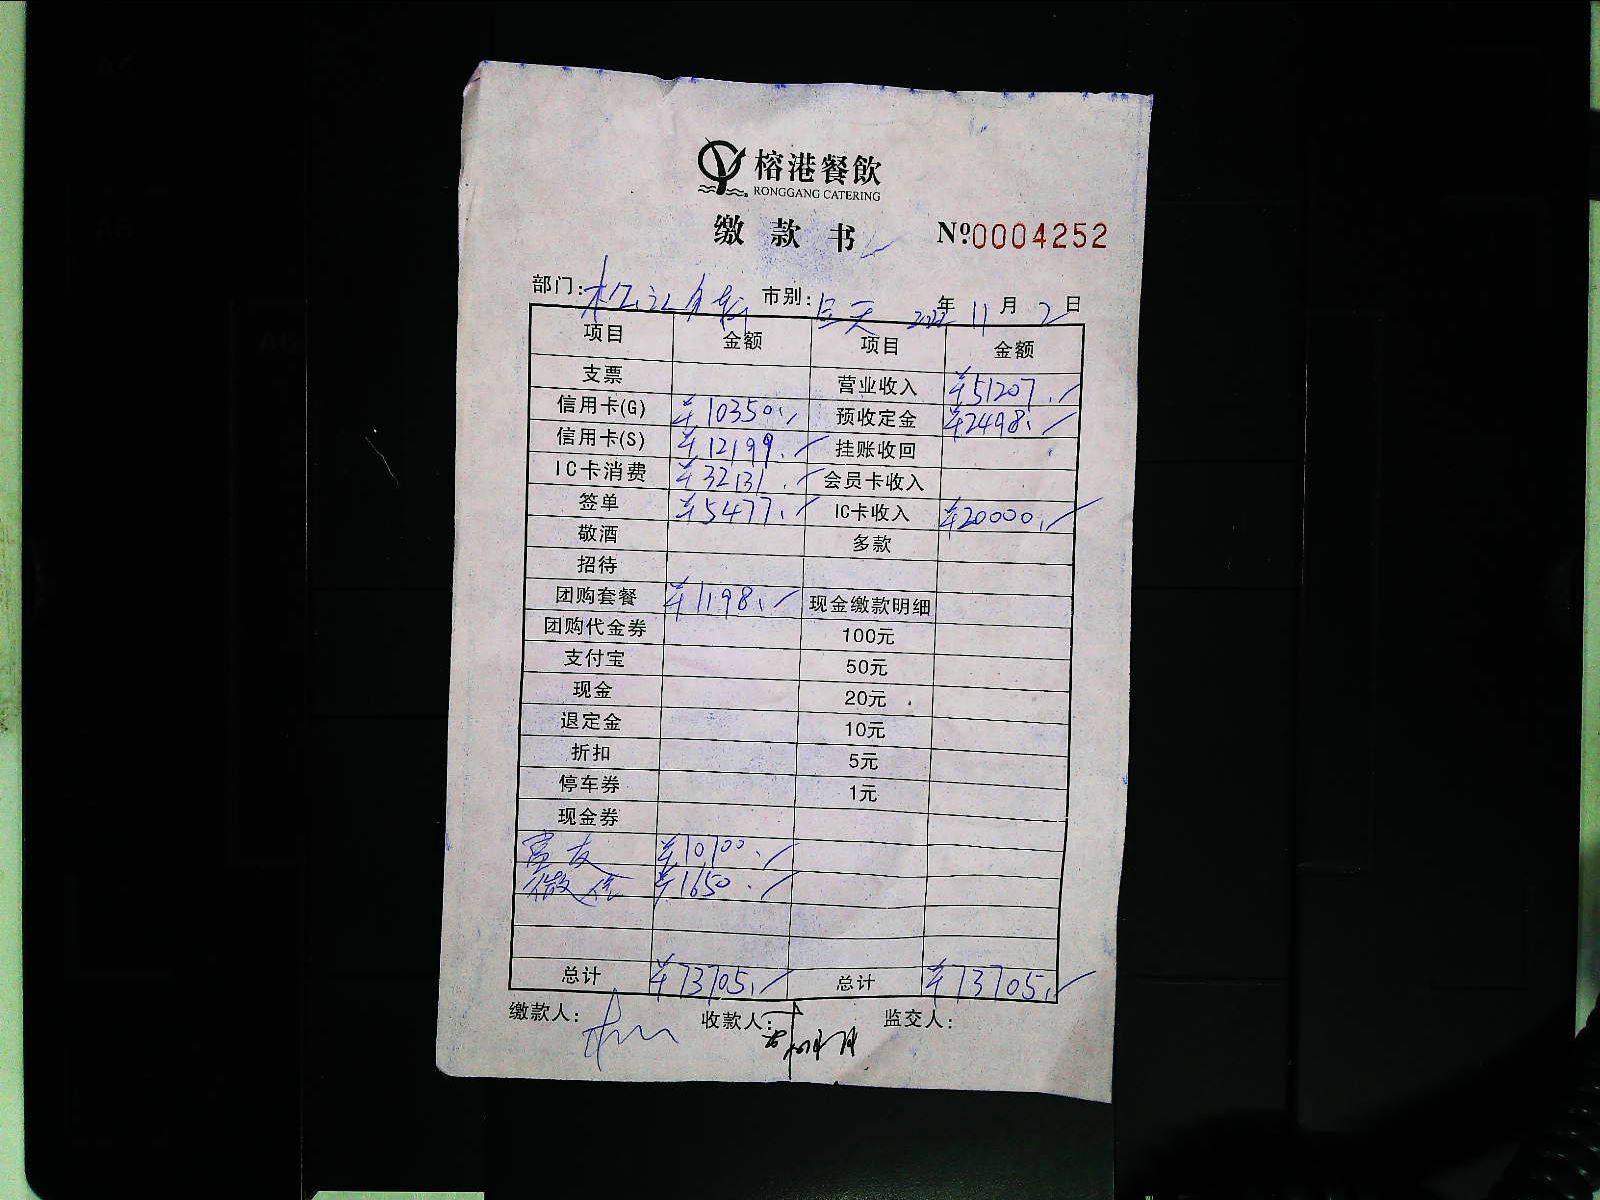 榕港餐飲
RONGGANG CATERING
缴款书
Nº0004252
部门: 市别: 年 11 月 2 日
项目 金额 项目 金额
支票 营业收入 ¥51207.
信用卡(G) ¥10350. 预收定金 ¥2498.
信用卡(S) ¥12199. 挂账收回
IC卡消费 ¥32131. 会员卡收入
签单 ¥5477. IC卡收入 ¥20000.
敬酒 多款
招待
团购套餐 ¥1198. 现金缴款明细
团购代金券 100元
支付宝 50元
现金 20元
退定金 10元
折扣 5元
停车券 1元
现金券
富友 ¥10100.
微信 ¥1650.
总计 ¥73705. 总计 ¥73705.
缴款人: 收款人: 监交人: